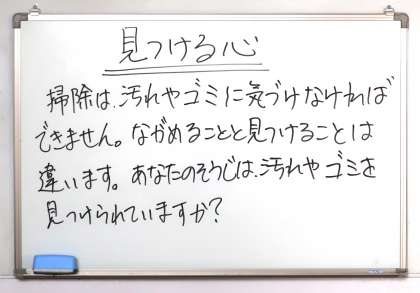 見つける心
掃除は、汚れやゴミに気づけなければ
できません。ながめることと見つけることは
違います。あなたのそうじは、汚れやゴミを
見つけられていますか?